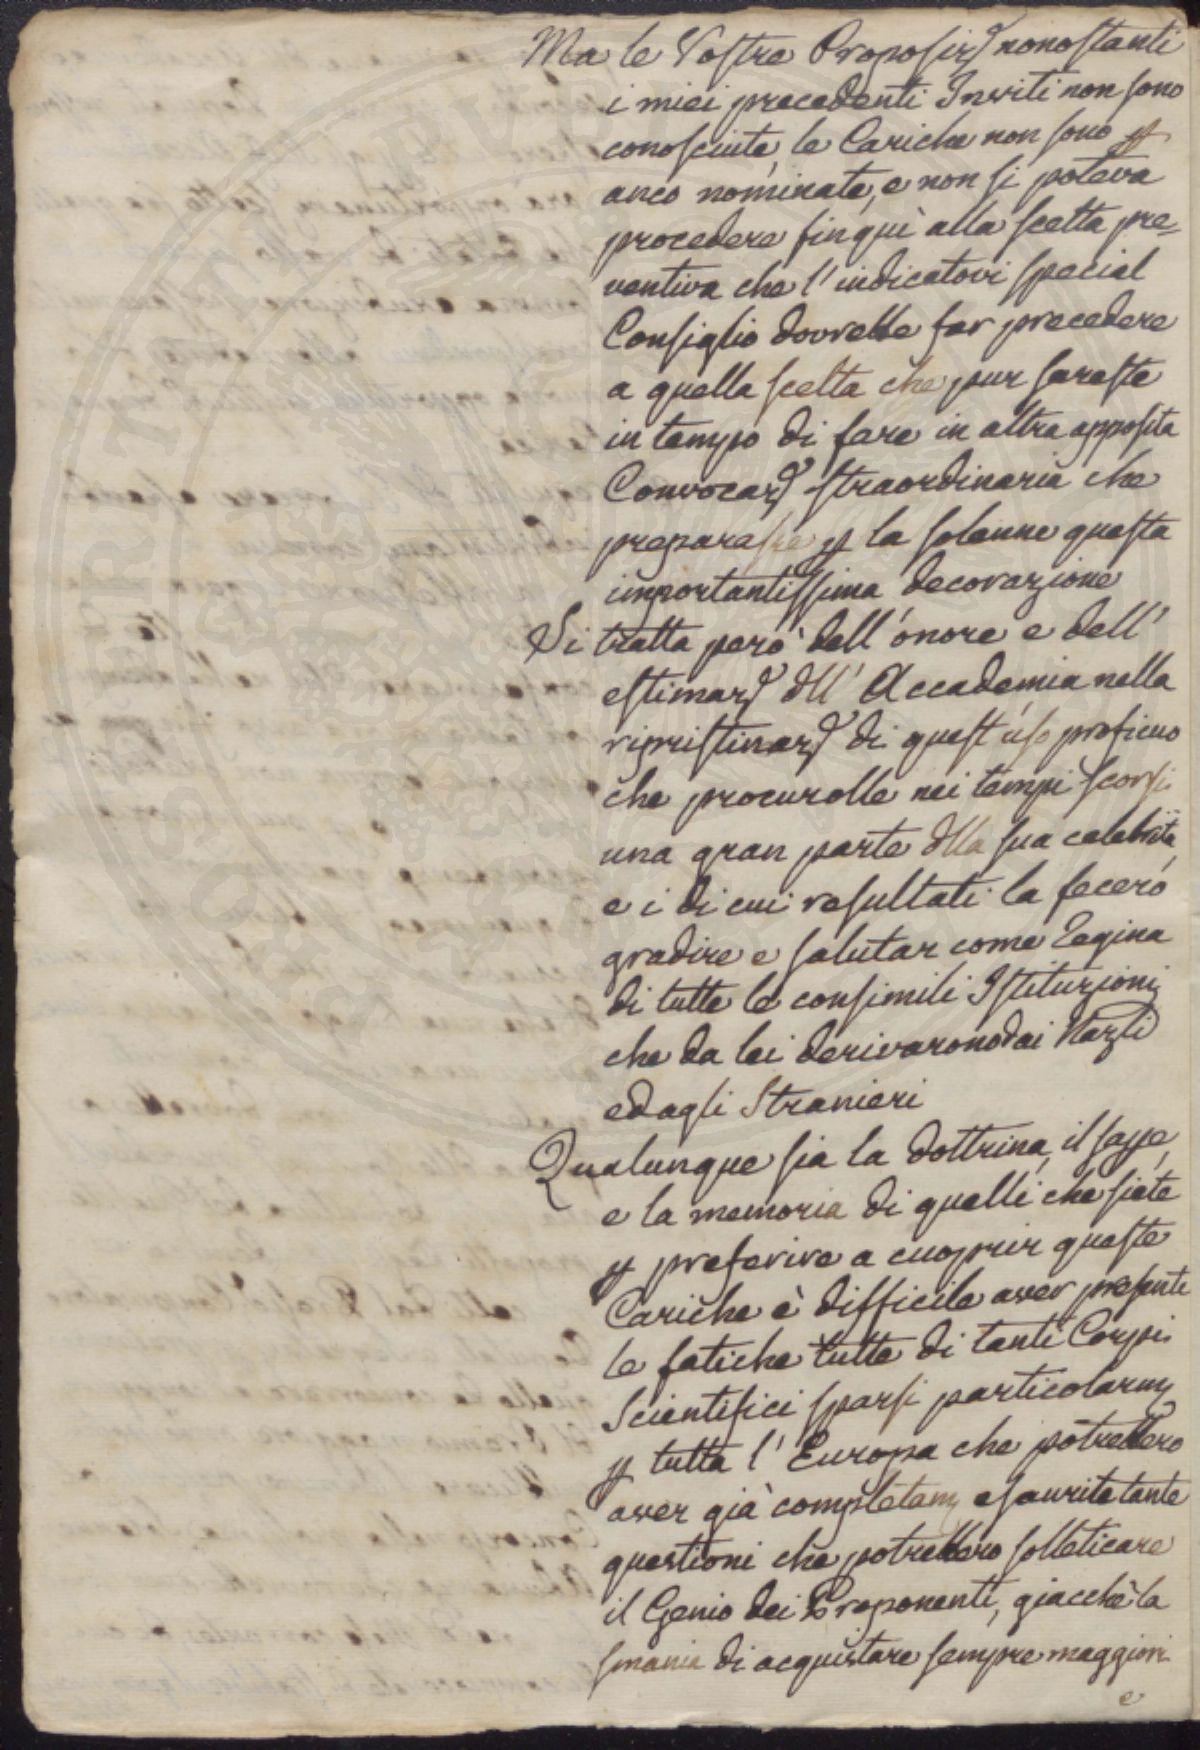 Ma le Vostre Proposizⁱ nonostanti
i miei precedenti Inviti non sono
conosciute, le Cariche non sono p
anco nominate, e non si poteva
procedere finquì alla scelta pre=
ventiva che l'indicatovi special
Consiglio dovrebbe far precedere
a quella scelta che pur sareste
in tempo di fare in altra apposita
Convocazᵉ straordinaria che
preparasse p la solenne questa
importantissima decorazione
Si tratta però dell'onore e dell'
estimazᵉ dll' Accademia nella
ripristinazᵉ di quest'uso proficuo
che procurolle nei tempi scorsi
una gran parte dlla sua celebrità,
e i di cui resultati la fecero
gradire e salutar come Regina
di tutte le consimili Istituzioni
che da lei derivarono dai Nazⁱ
ed agli Stranieri
Qualunque sia la dottrina, il sape,
e la memoria di quelli che siete
p preferire a cuoprir queste
Cariche è difficile aver presenti
le fatiche tutte di tanti Corpi
Scientifici sparsi particolarm
p tutta l'Europa che potrebbero
aver già completam esaurite tante
questioni che potrebbero solleticare
il Genio dei Proponenti, giacchè la
smania di acquistare sempre maggiori
e